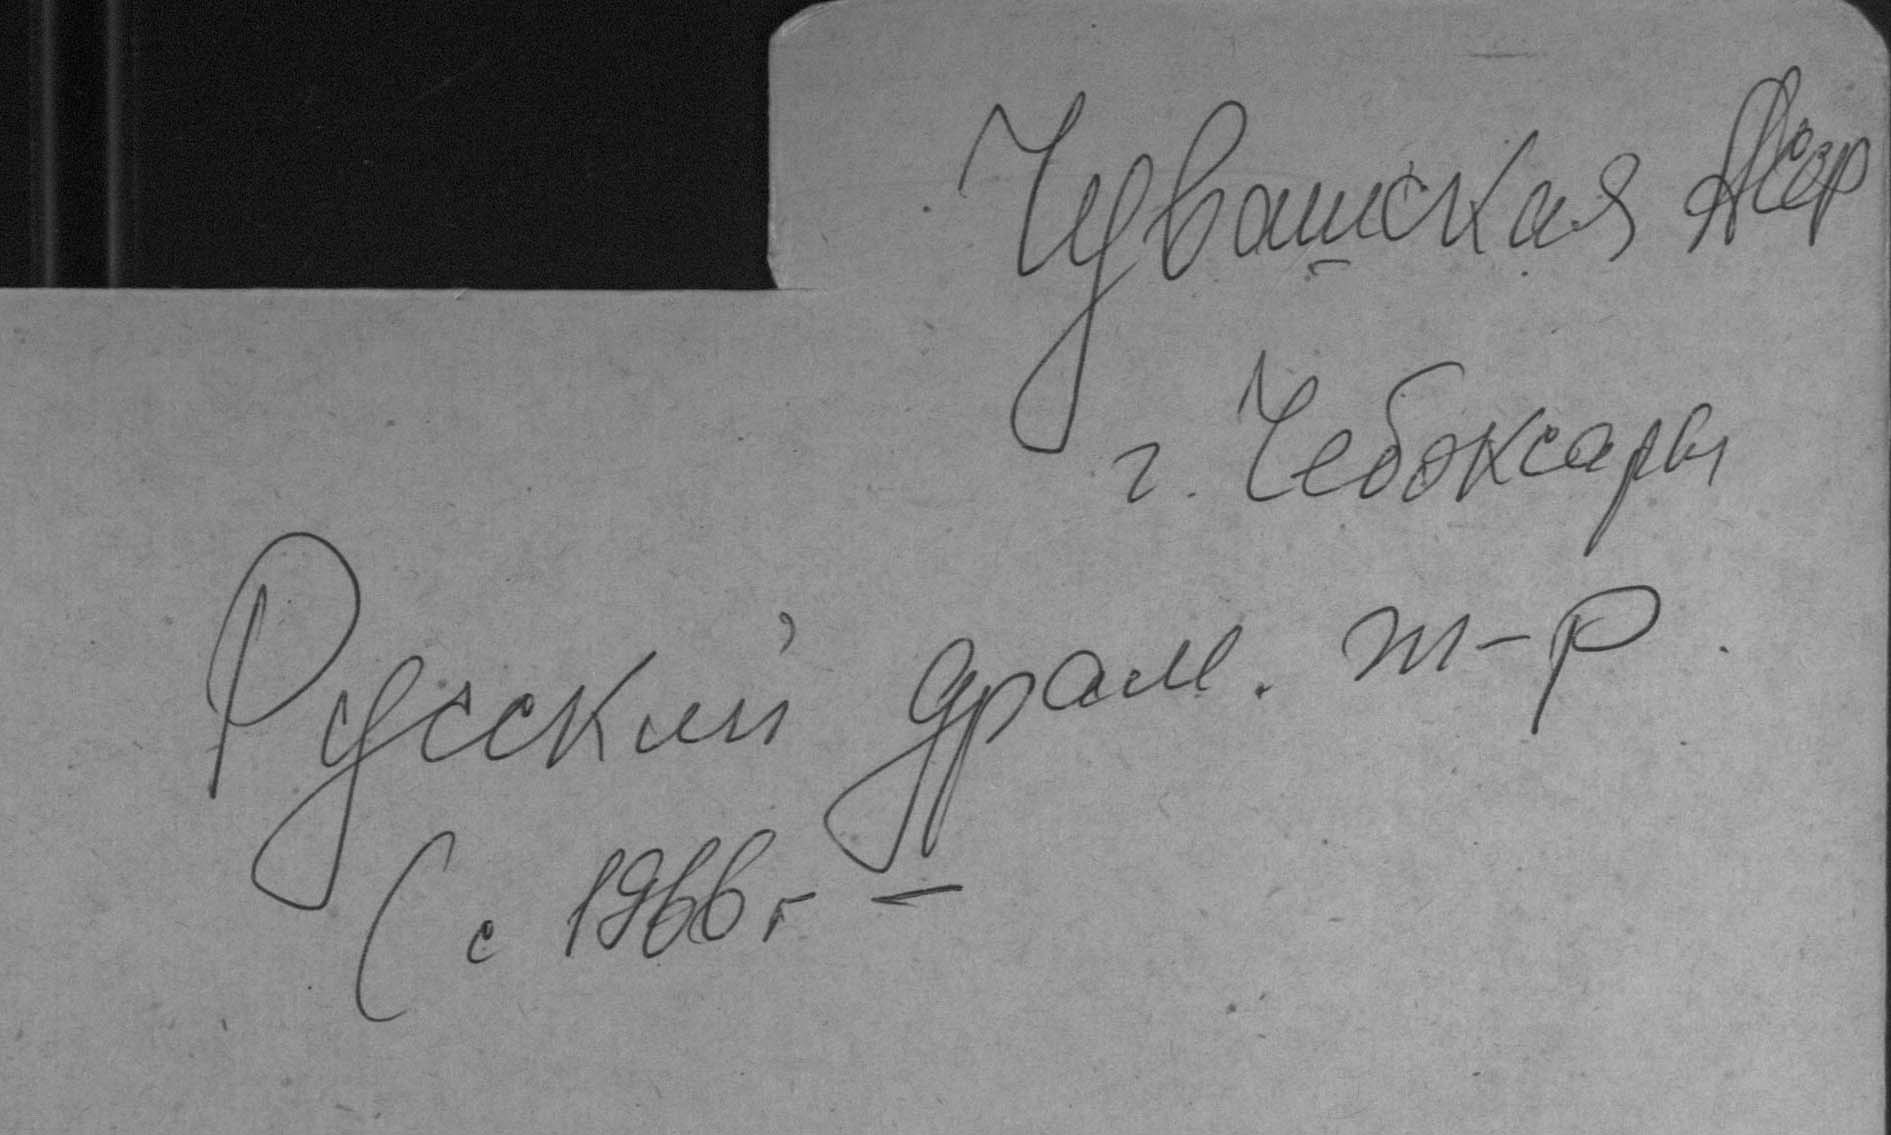 Чувашская АССР
г. Чебоксары
Русский драм. т-р.
(с 1966 г –